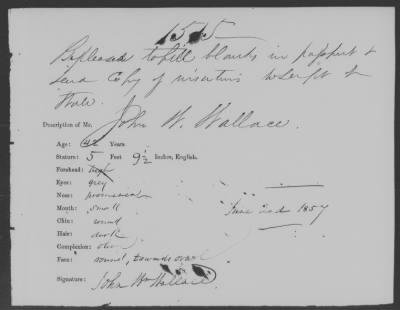 1515
Be pleased to fill blanks in passport &
send copy of insertions
State.
Description of Mr. John W. Wallace.
Age: 42 Years
Stature: 5 Feet 9 1/2 Inches, English.
Forehead: high
Eyes: grey
Nose: prominent
Mouth: small
Chin: round
June 2nd 1857
Hair: dark
Complexion: olive
Face: round, towards oval
Signature: John Wm Wallace